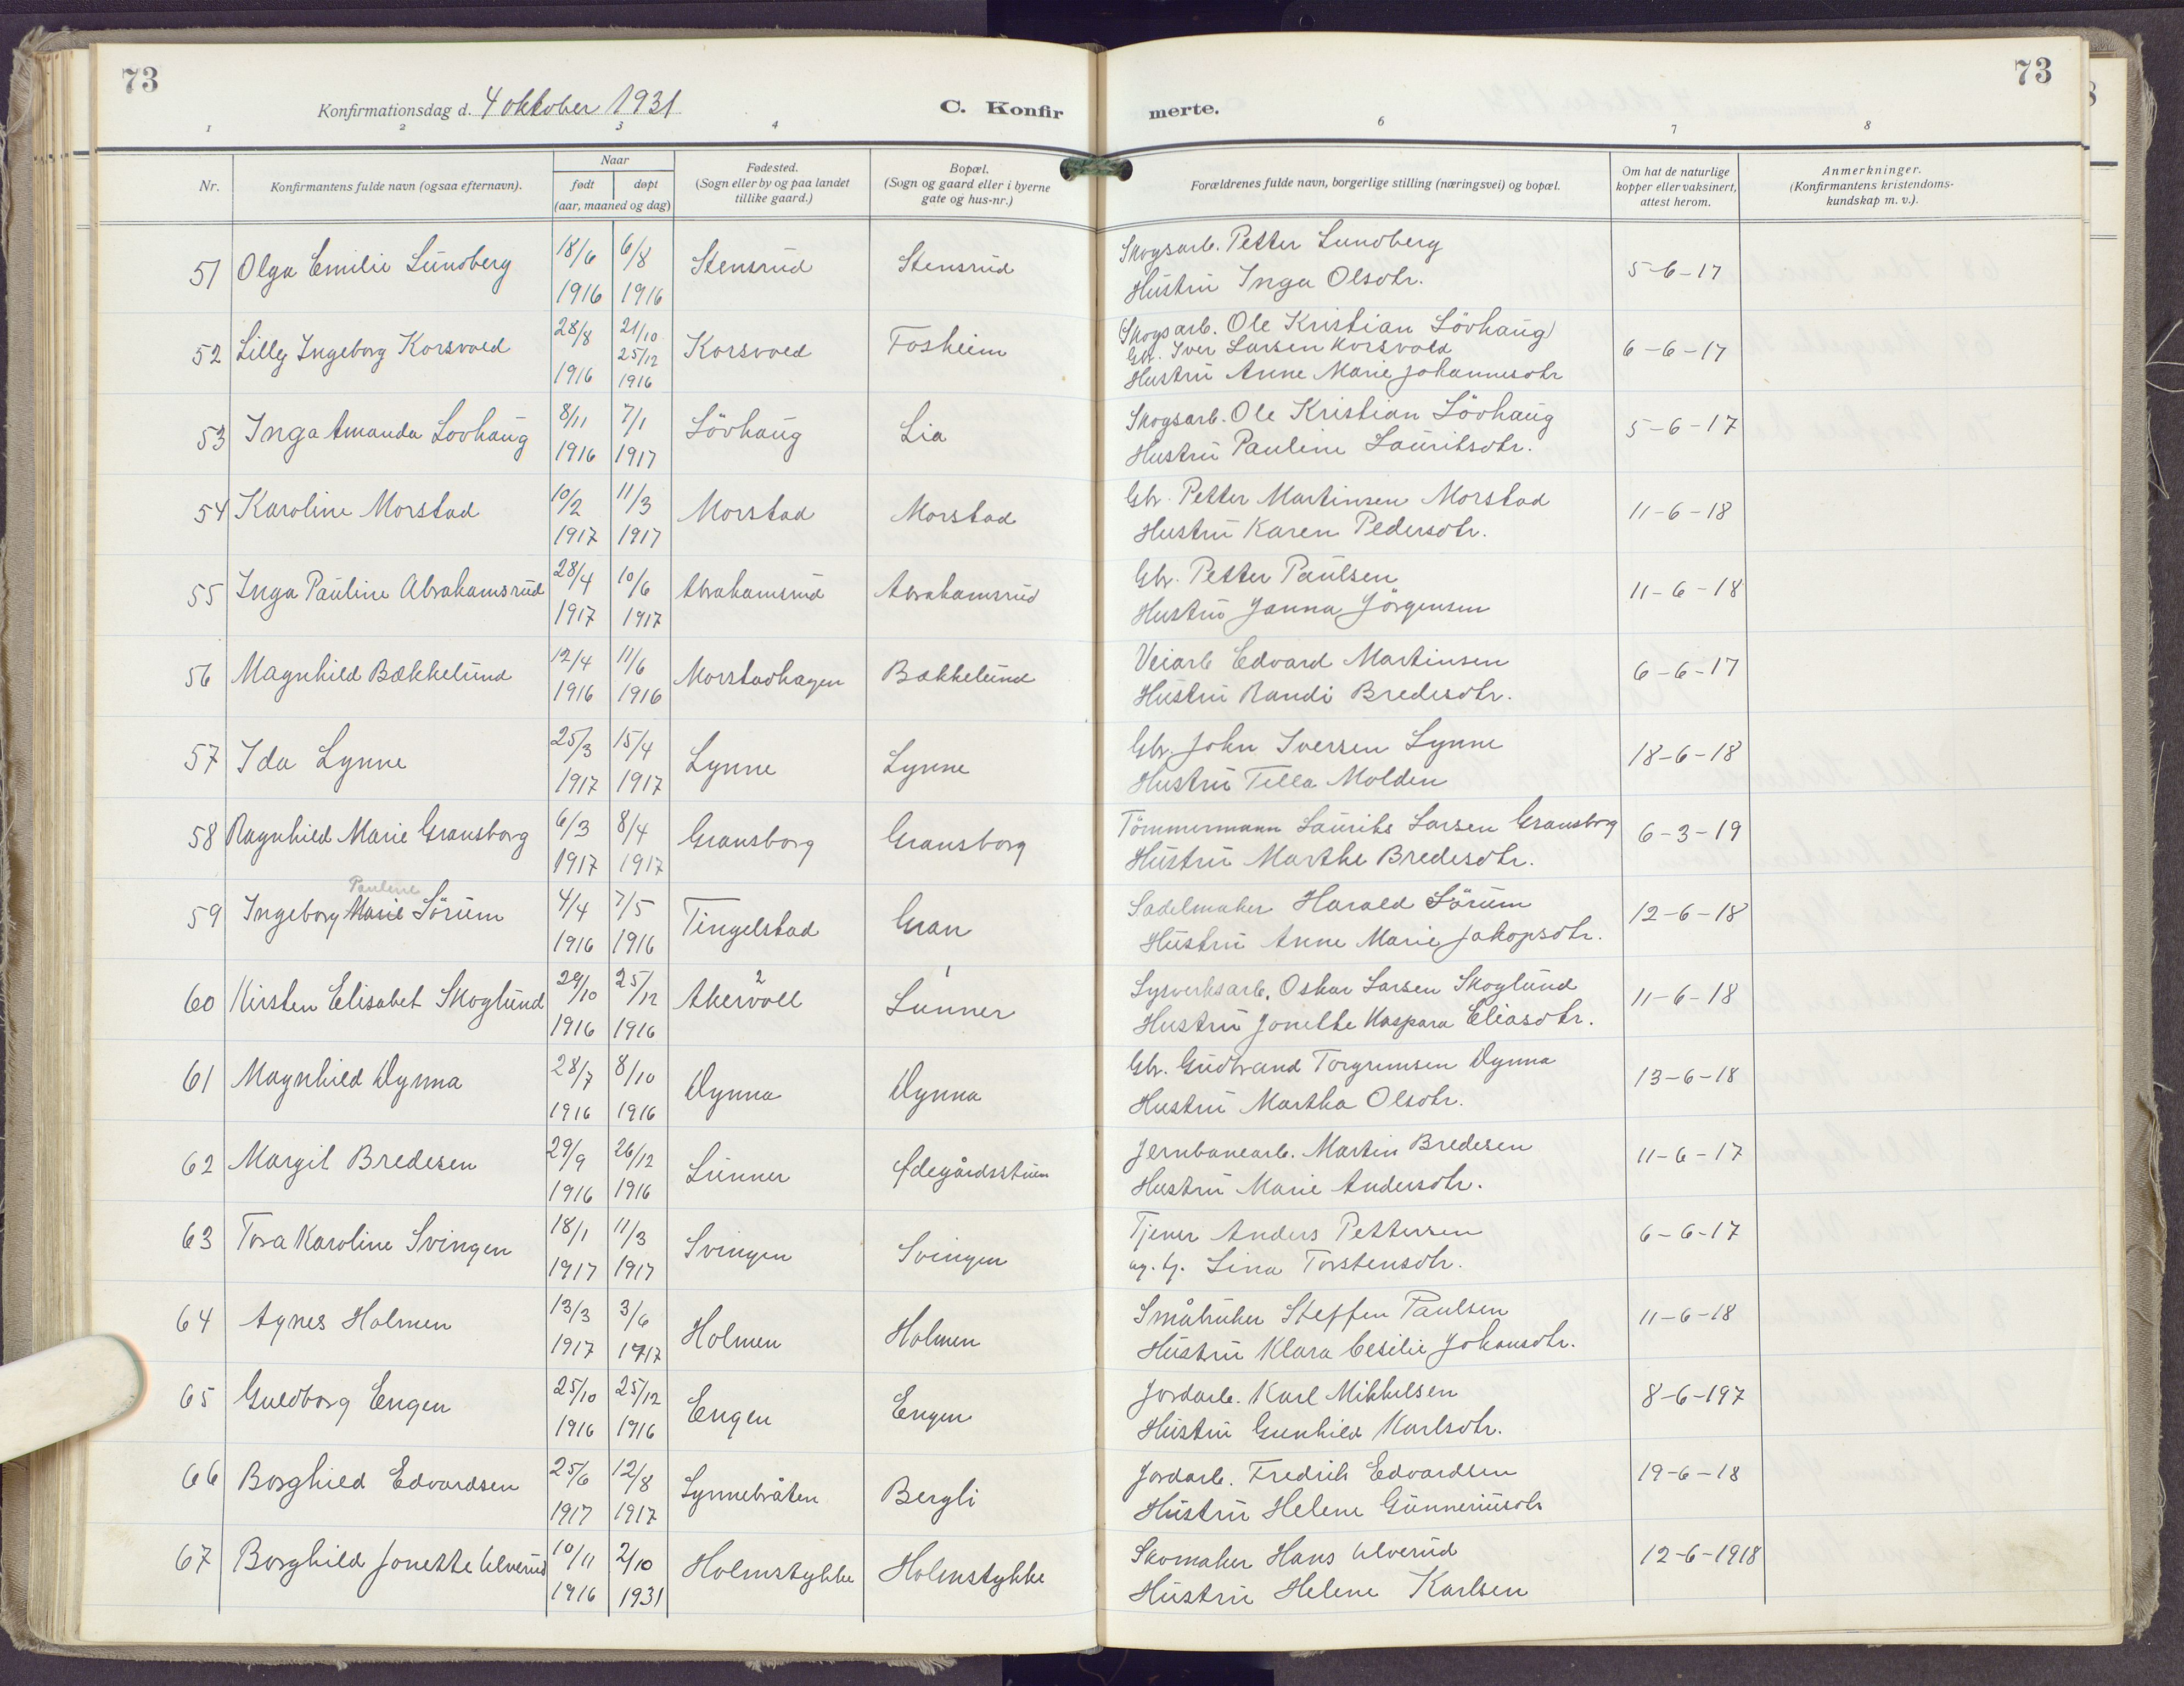 73
Konfirmationsdag d. 4 oktober 1931
C. Konfirmerte.
73
1 2 3 4 6 7 8
Nr.
Konfirmantens fulde navn (ogsaa efternavn).
Naar
født døpt
(aar, maaned og dag)
Fødested.
(Sogn eller by og paa landet
tillike gaard.)
Bopæl.
(Sogn og gaard eller i byerne
gate og hus-nr.)
Forældrenes fulde navn, borgerlige stilling (næringsvei) og bopæl.
Om hat de naturlige
kopper eller vaksinert,
attest herom.
Anmerkninger.
(Konfirmantens kristendoms-
kundskap m. v.).
51 Olga Emilie Lundberg 18/6 6/8 Stensrud Stensrud Skogsarb. Petter Lundberg 5-6-17
1916 1916 Hustru Inga Olsdtr.
52 Lilly Ingeborg Korsvold 28/8 21/10 Korsvold Fosheim (Skogsarb. Ole Kristian Lövhaug) 6-6-17
25/12 Gbr. Iver Larsen Korsvold
1916 1916 Hustru Anne Marie Johannesdtr
53 Inga Amanda Lovhaug 8/11 7/1 Lövhaug Lia Skogsarb. Ole Kristian Lövhaug 5-6-17
1916 1917 Hustru Pauline Lauritsdtr.
54 Karoline Morstad 10/2 11/3 Morstad Morstad Gbr. Petter Martinsen Morstad 11-6-18
1917 1917 Hustru Karen Pedersdtr.
55 Inga Pauline Abrahamsrud 28/4 10/6 Abrahamsrud Abrahamsrud Gbr. Petter Paulsen 11-6-18
1917 1917 Hustru Janna Jörgensen
56 Magnhild Bækkelund 12/4 11/6 Morstadhagen Bækkelund Veiarb Edvard Martinsen 6-6-17
1916 1916 Hustru Randi Bredesdtr.
57 Ida Lynne 25/3 15/4 Lynne Lynne Gbr. John Iversen Lynne 18-6-18
1917 1917 Hustru Tella Molden
58 Ragnhild Marie Gransborg 6/3 8/4 Gransborg Gransborg Tömmermann Laurits Larsen Gransborg 6-3-19
1917 1917 Hustru Marthe Bredesdtr.
Pauline
59 Ingeborg Marie Sörum 4/4 7/5 Tingelstad Gran Sadelmaker Harald Sörum 12-6-18
1916 1916 Hustru Anne Marie Jakopsdtr.
60 Kirsten Elisabet Skoglund 29/10 25/12 Akervoll Lunner Lysverksarb. Oskar Larsen Skoglund 11-6-18
1916 1916 Hustru Jonette Kaspara Eliasdtr.
61 Magnhild Dynna 28/7 8/10 Dynna Dynna Gbr. Gudbrand Torgrimsen Dynna 13-6-18
1916 1916 Hustru Martha Olsdtr.
62 Margit Bredesen 29/9 26/12 Lunner Ødegårdsstuen Jernbanearb. Martin Bredesen 11-6-17
1916 1916 Hustru Marie Andersdtr.
63 Tora Karoline Svingen 18/1 11/3 Svingen Svingen Tjener Anders Pettersen 6-6-17
1917 1917 ug. tj. Lina Torstensdtr.
64 Agnes Holmen 13/3 3/6 Holmen Holmen Småbruker Steffen Paulsen 11-6-18
1917 1917 Hustru Klara Cesilie Johansdtr.
65 Guldborg Engen 25/10 25/12 Engen Engen Jordarb. Karl Mikkelsen 8-6-197
1916 1916 Hustru Gunhild Karlsdtr.
66 Borghild Edvardsen 25/6 12/8 Lynnebråten Bergli Jordarb. Fredrik Edvardsen 19-6-18
1917 1917 Hustru Helene Gunneriusdtr
67 Borghild Jonette Ulverud 10/11 2/10 Holmstykke Holmstykke Skomaker Hans Ulverud 12-6-1918
1916 1931 Hustru Helene Karlsen